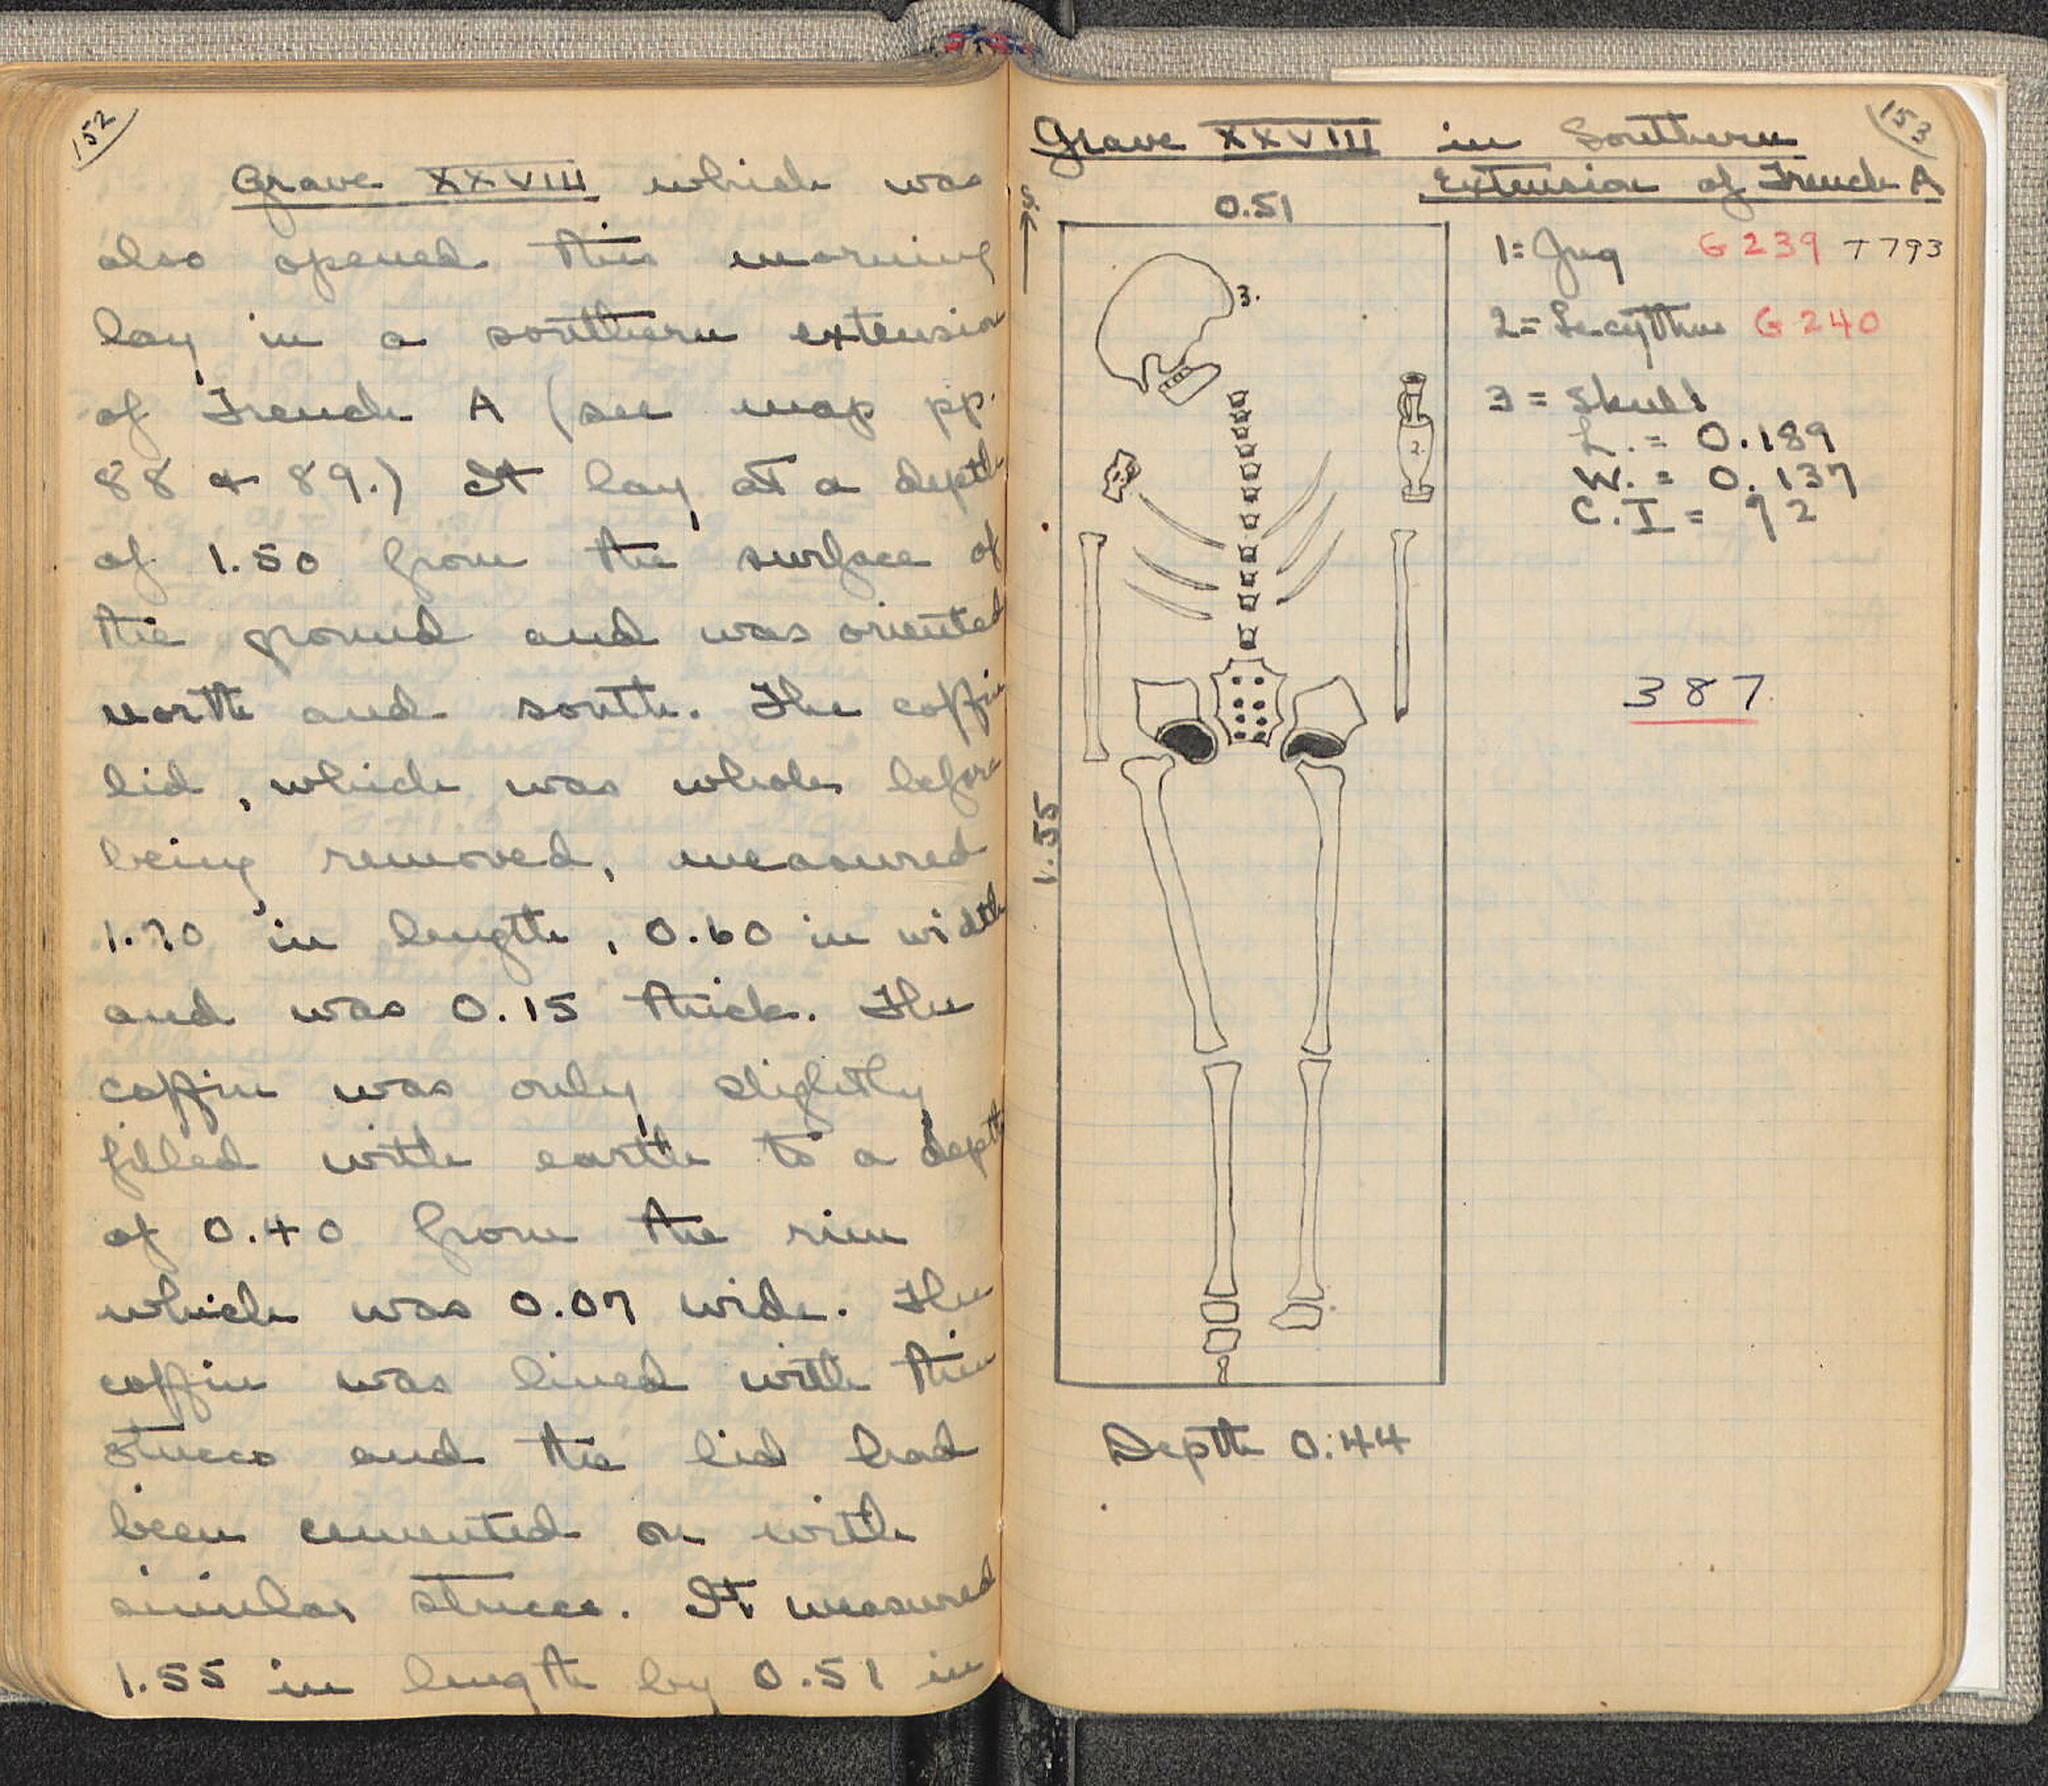 152
Grave XXVIII which was
also opened this morning
lay in a southern extension
of Trench A (see map pp.
88 & 89.) It lay at a depth
of 1.50 from the surface of
the ground and was oriented
north and south. The coffin
lid, which was whole before
being removed, measured
1.70 in length, 0.60 in width
and was 0.15 thick. The
coffin was only slightly
filled with earth to a depth
of 0.40 from the rim
which was 0.07 wide. The
coffin was lined with thin
stucco and the lid had
been cemented on with
similar stucco. It measured
1.55 in length by 0.51 in
153
Grave XXVIII in Southern
Extension of Trench A
S.
0.51
1.55
3.
2.
Depth 0.44
1 = Jug G 239 T 793
2 = Lecythus G 240
3 = Skull
L. = 0.189
W. = 0.137
C.I = 72
387